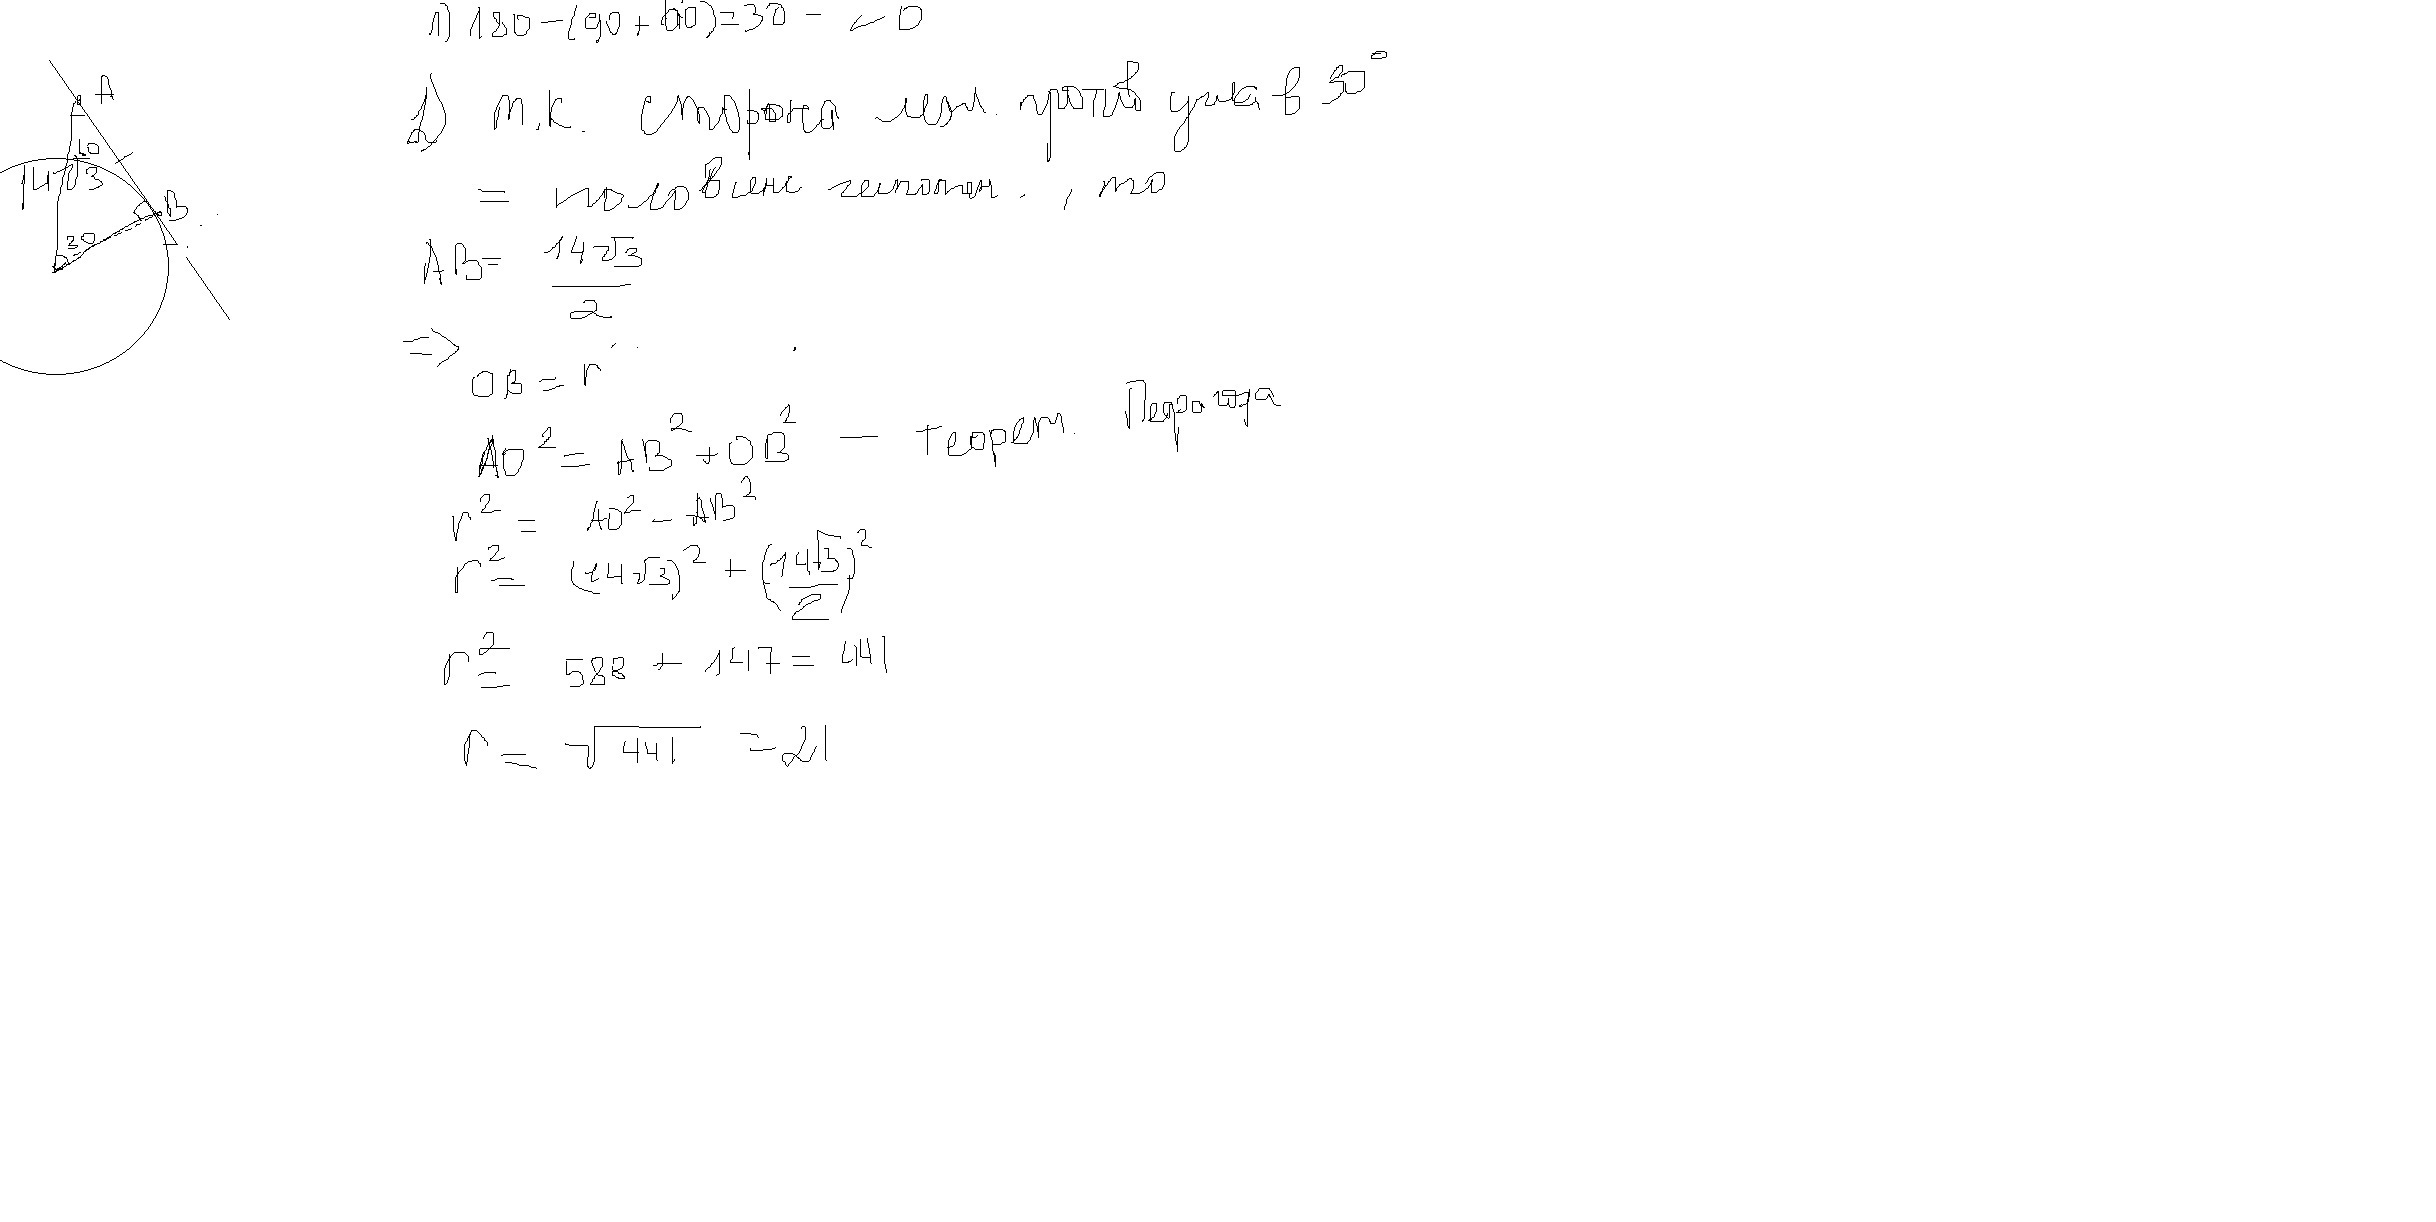 1) 180 - (90 + 60) = 30 - ∠O
2) т.к. сторона леж. против угла в 30°
= половине гипотен., то
AB = 14√3 / 2
=>
OB = r
AO² = AB² + OB² — теорем. Пифагора
r² = AO² - AB²
r² = (14√3)² + (14√3 / 2)²
r² = 588 + 147 = 441
r = √441 = 21
A
60
14√3
B
30